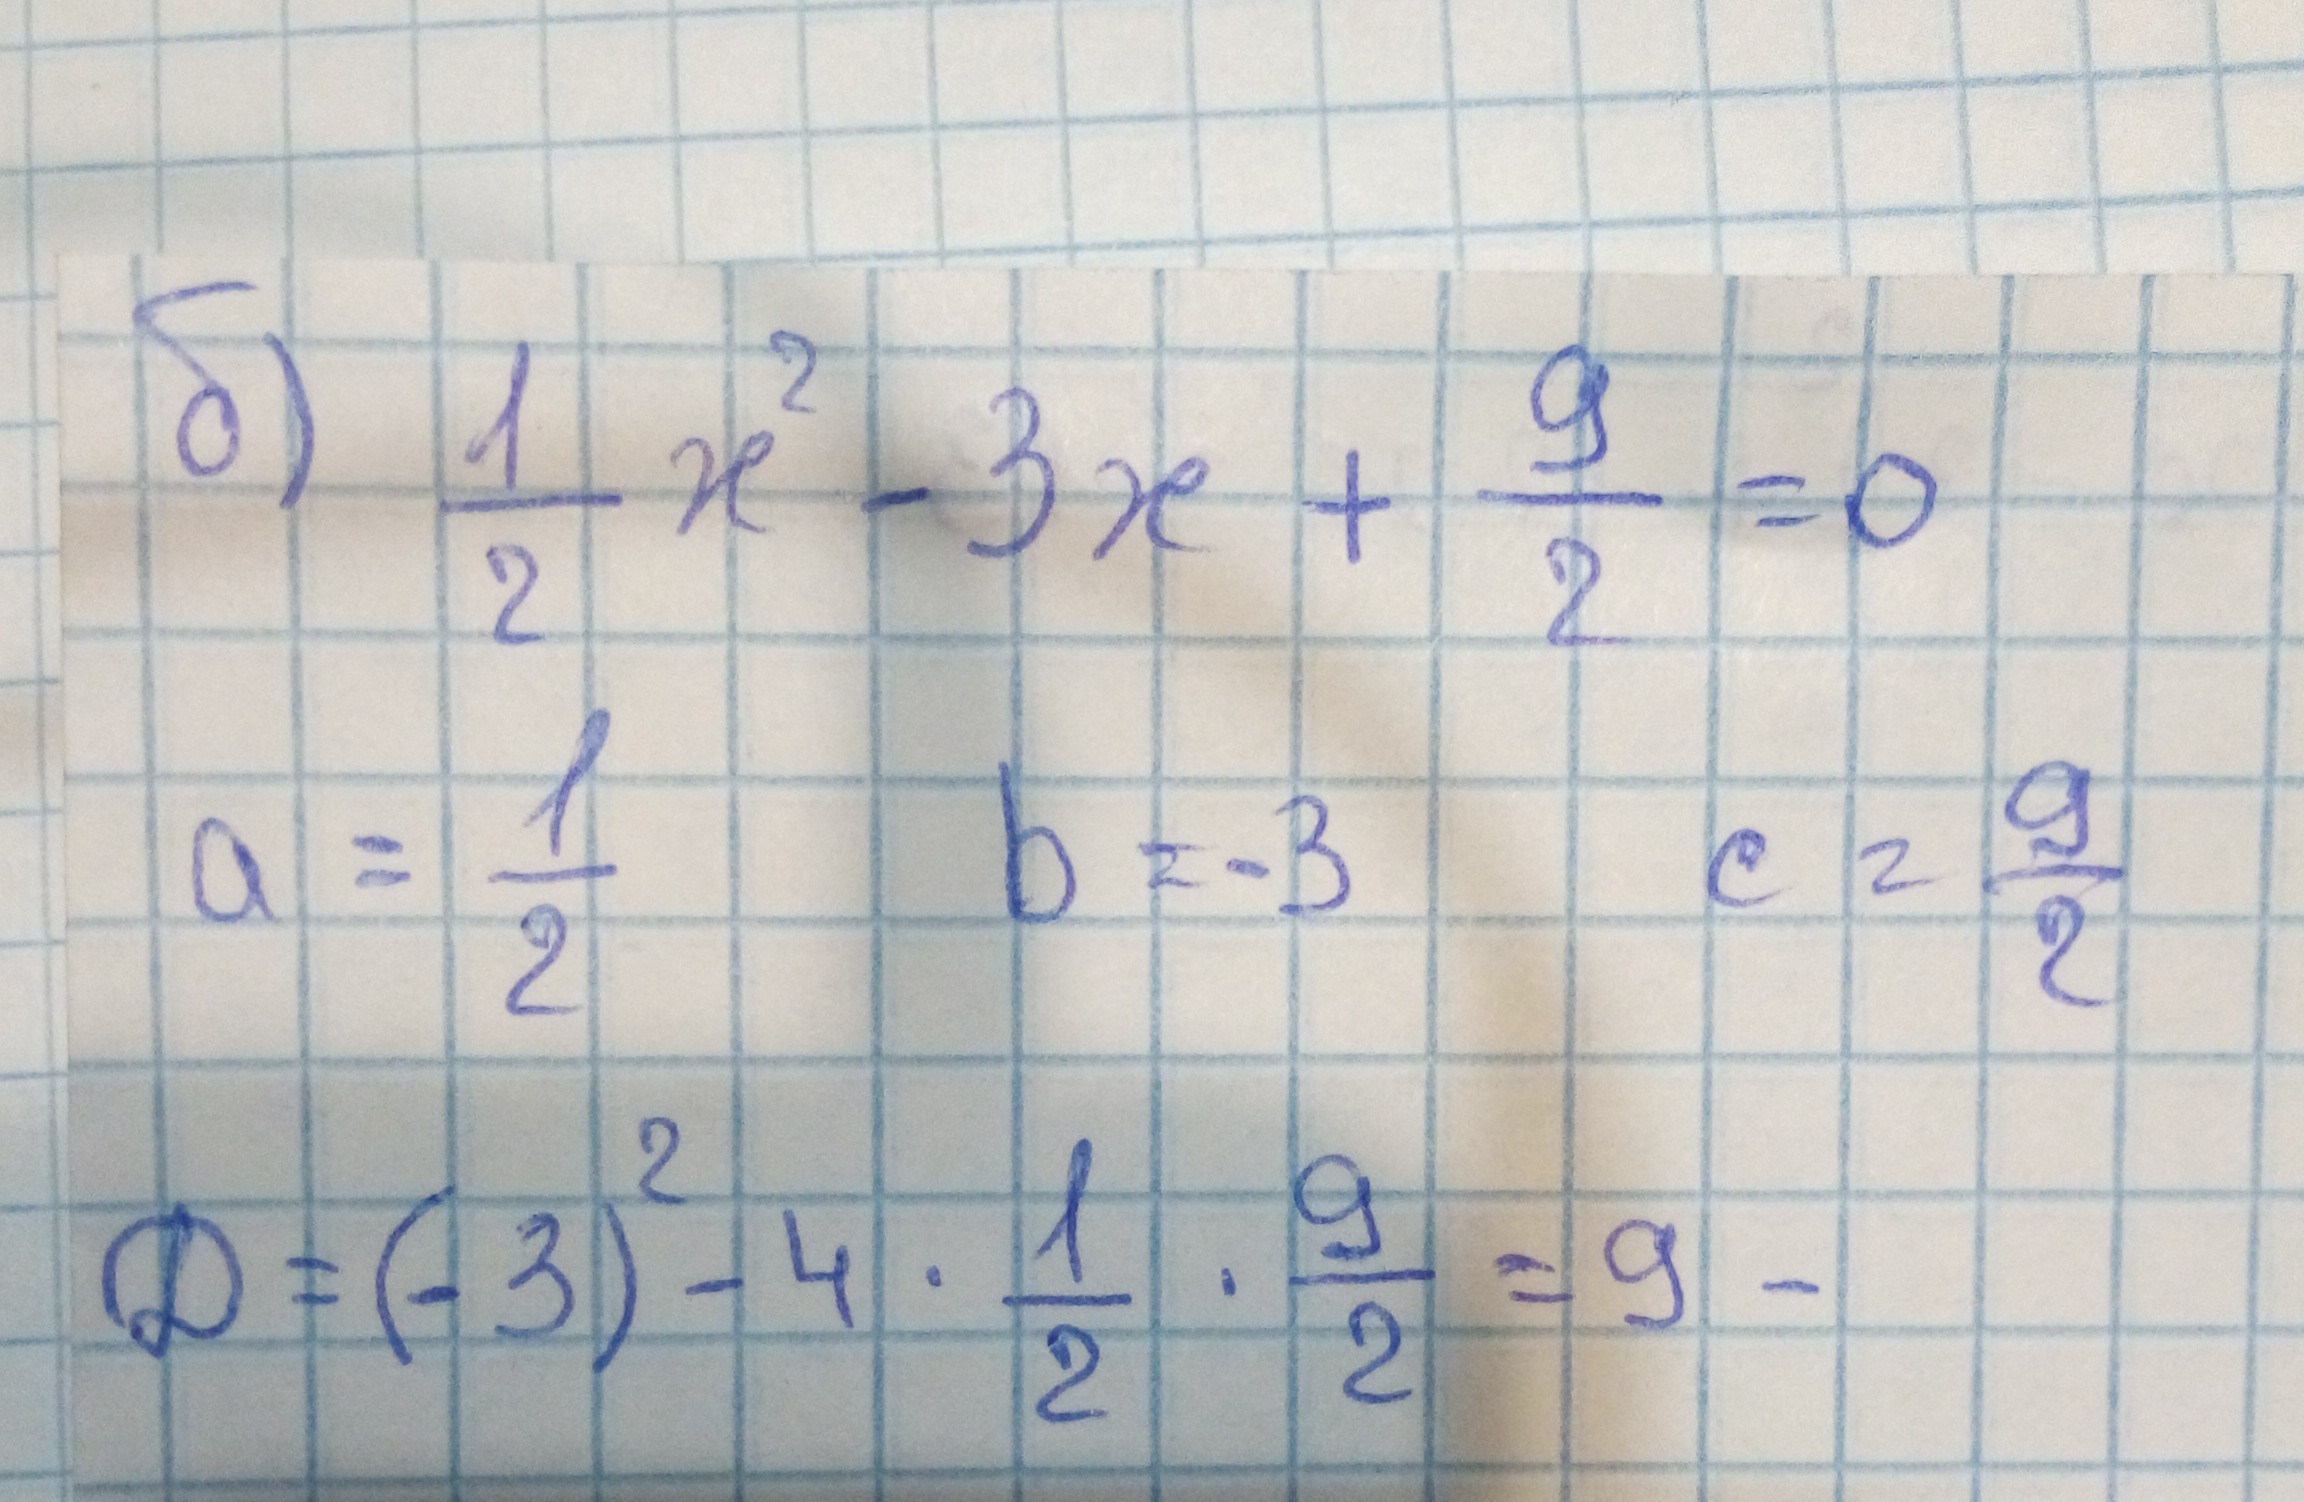 б) 1/2 x² - 3x + 9/2 = 0
a = 1/2 b = -3 c = 9/2
D = (-3)² - 4 · 1/2 · 9/2 = 9 -